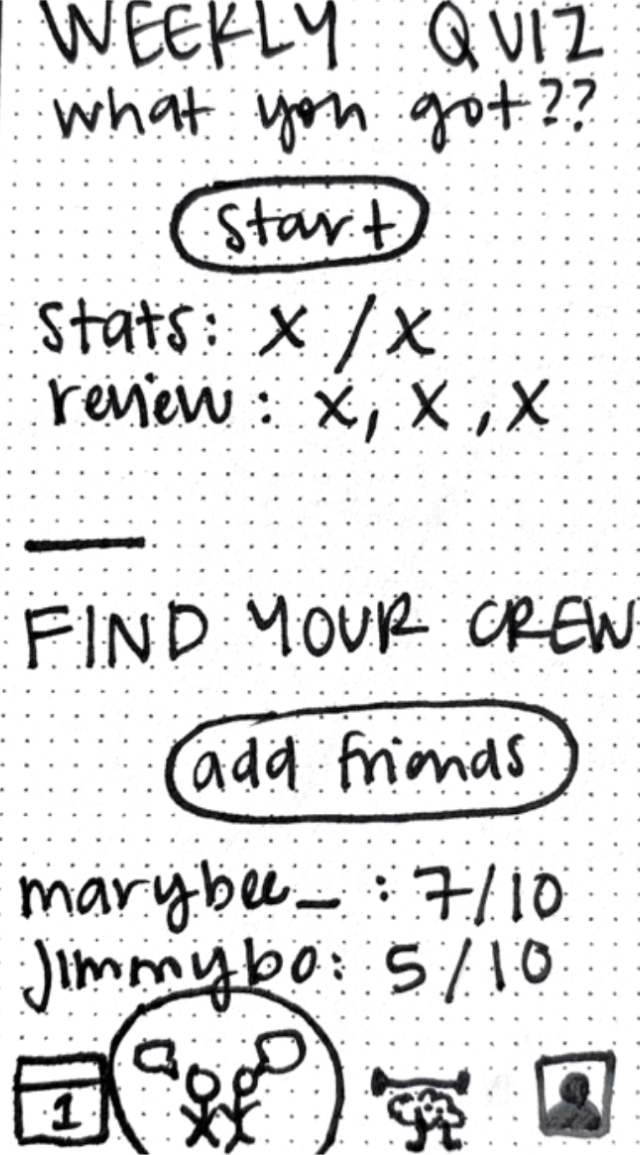 WEEKLY QUIZ
what you got??
start
stats: x / x
review: x, x, x
FIND YOUR CREW
add friends
marybee_ : 7/10
jimmybo: 5/10
1